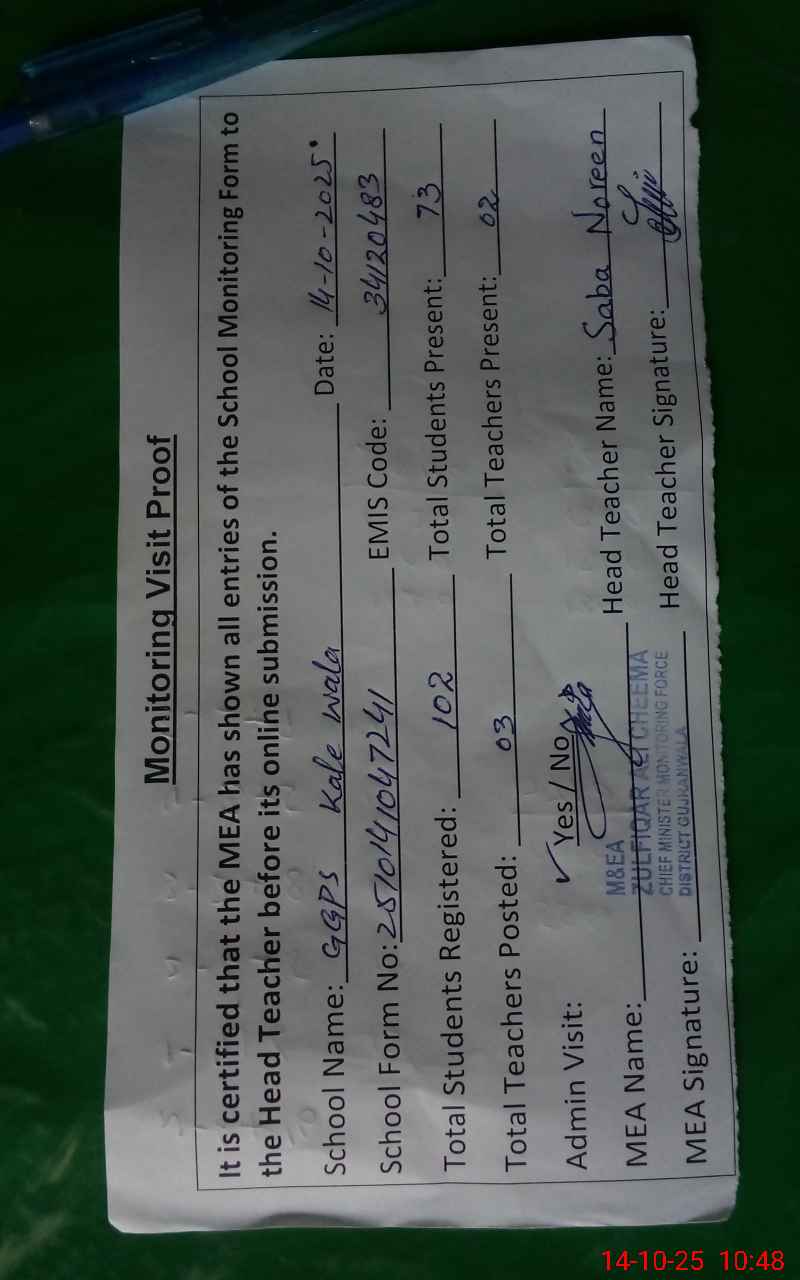 Monitoring Visit Proof
It is certified that the MEA has shown all entries of the School Monitoring Form to
the Head Teacher before its online submission.
School Name: GGPS Kale Wala Date: 14-10-2025
School Form No: 2510141047241 EMIS Code: 34120483
Total Students Registered: 102 Total Students Present: 73
Total Teachers Posted: 03 Total Teachers Present: 02
Admin Visit: ✓ Yes / No
M&EA
MEA Name: ZULFIQAR ALI CHEEMA Head Teacher Name: Saba Noreen
CHIEF MINISTER MONITORING FORCE
MEA Signature: DISTRICT GUJRANWALA Head Teacher Signature:
14-10-25 10:48